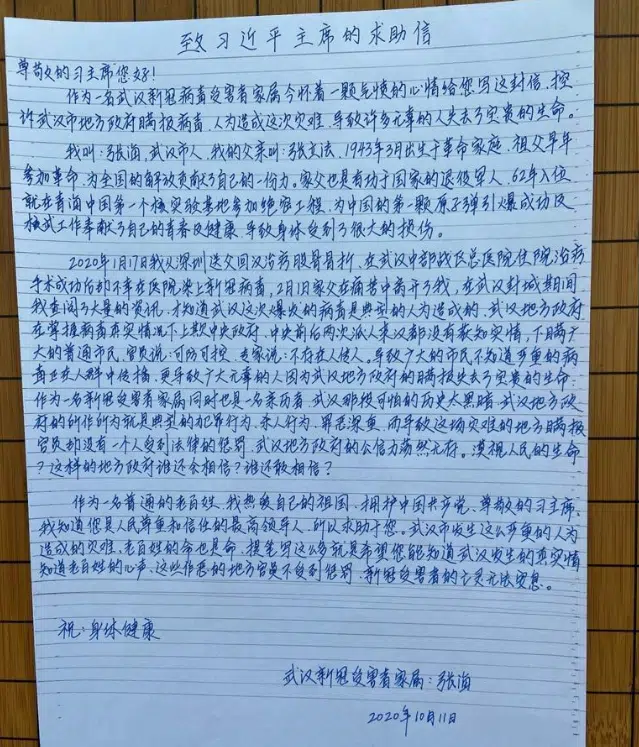 致习近平主席的求助信
尊敬的习主席您好!
作为一名武汉新冠病毒受害者家属今怀着一颗气愤的心情给您写这封信. 控
诉武汉市地方政府瞒报病毒、人为造成这次灾难、导致许多无辜的人失去了宝贵的生命。
我叫:张海、武汉市人、我的父亲叫:张立法、1943年3月出生于革命家庭、祖父早年
参加革命、为全国的解放贡献了自己的一份力。家父也具有功于国家的退役军人、62年入伍
就在青海中国第一个核实验基地参加绝密工程、为中国的第一颗原子弹引爆成功及
核武工作奉献了自己的青春及健康、导致身体受到了很大的损伤。
2020年1月17我从深圳送父回汉治疗股骨骨折、在武汉中部战区总医院住院治疗
手术成功后却不幸在医院染上新冠病毒、2月1日家父在痛苦中离开了我、在武汉封城期间
我查阅了大量的资讯、才知道武汉这次爆发的病毒是典型的人为造成的、武汉地方政府
在掌握病毒真实情况下上欺中央政府、中央前后两次派人来汉都没有获知实情、下瞒广
大的普通市民、官员说:可防可控、专家说:不存在人传人、导致广大的市民不知道严重的病
毒正在人群中传播、更导致广大无辜的人因为武汉地方政府的瞒报失去了宝贵的生命:
作为一名新冠受害者家属同时也是一名亲历者、武汉那段可怕的历史太黑暗、武汉地方政
府的所作所为就是典型的犯罪行为、杀人行为、罪恶深重、而导致这场灾难的地方瞒报
官员却没有一个人受到法律的惩罚、武汉地方政府的公信力荡然无存。漠视人民的生命
?这样的地方政府谁还会相信?谁还敢相信?
作为一名普通的老百姓、我热爱自己的祖国、拥护中国共产党、尊敬的习主席、
我知道您是人民尊重和信任的最高领导人、所以求助于您。武汉市发生这么严重的人为
造成的灾难、老百姓的命也是命、提笔写这么多就是希望您能知道武汉发生的真实情
知道老百姓的心声、这些作恶的地方官员不受到惩罚、新冠受害者的亡灵无法安息。
祝:身体健康
武汉新冠受害者家属:张海
2020年10月11日